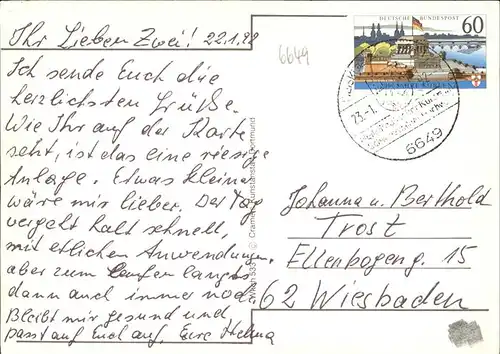 Ihr Lieben Zwei! 22.1.92
Ich sende Euch die
herzlichsten Grüße.
Wie Ihr auf der Karte
seht, ist das eine riesige
Anlage. Etwas kleiner
wäre mir lieber. Der Tag
vergeht halt schnell,
mit etlichen Anwendungen,
aber zum laufen langts
dann auch immer noch.
Bleibt mir gesund und
passt auf Euch auf, Eure Helma
6649
DEUTSCHE BUNDESPOST
60
23.-1.
6649
Johanna u. Berthold
Trost
Ellenbogeng. 15
62 Wiesbaden